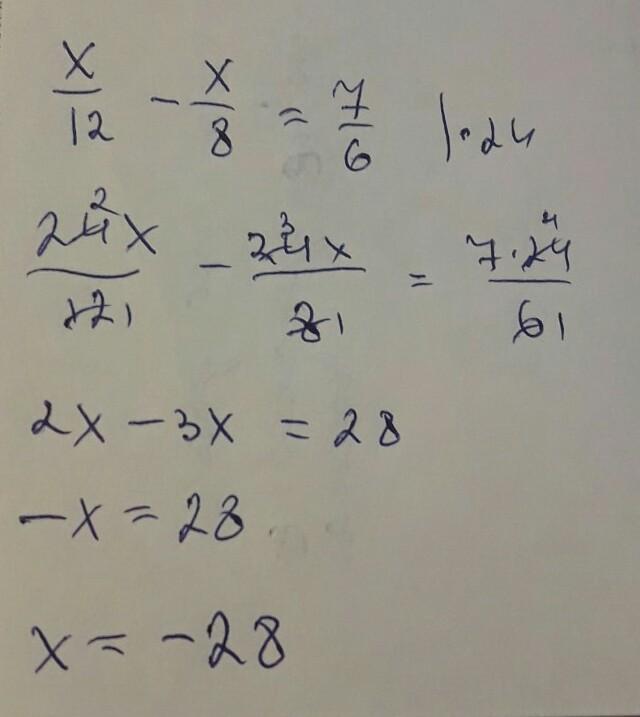 x/12 - x/8 = 7/6 |·24
24²x/12 1 - 24³x/8 1 = 7·24⁴/6 1
2x - 3x = 28
-x = 28
x = -28